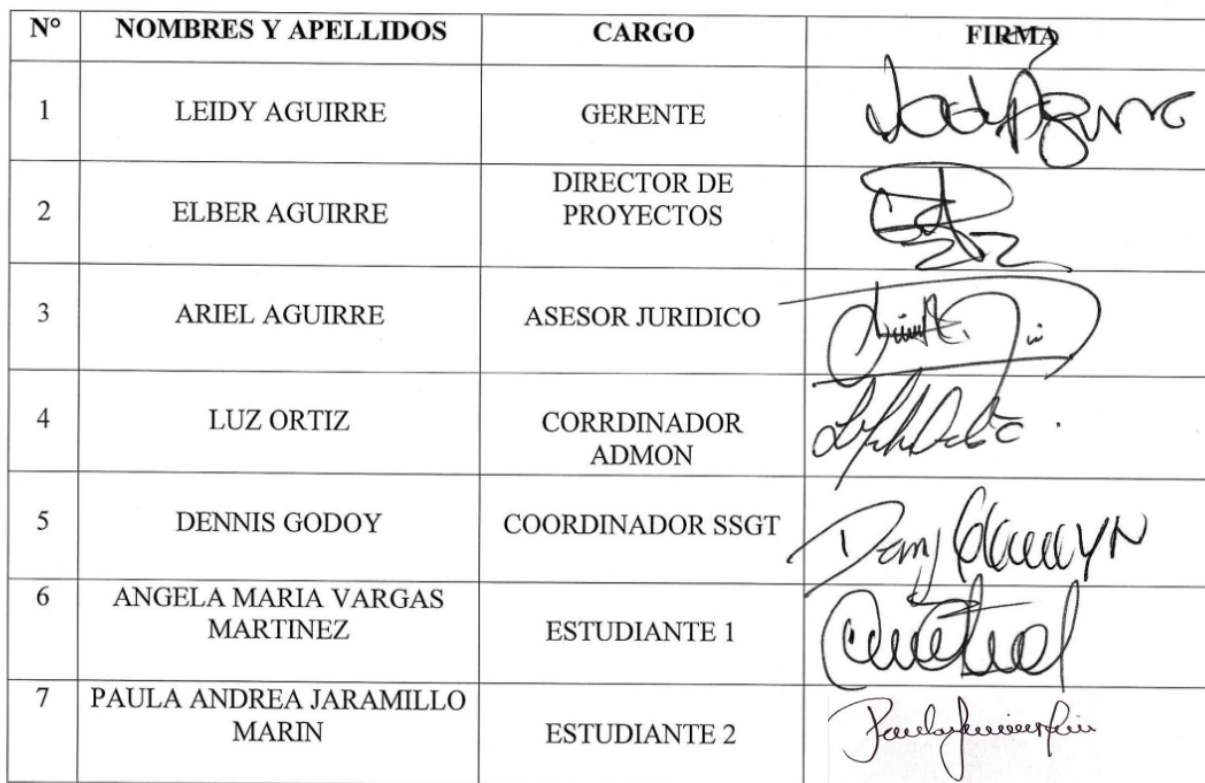 N° NOMBRES Y APELLIDOS CARGO FIRMA
1 LEIDY AGUIRRE GERENTE
2 ELBER AGUIRRE DIRECTOR DE
PROYECTOS
3 ARIEL AGUIRRE ASESOR JURIDICO
4 LUZ ORTIZ CORRDINADOR
ADMON
5 DENNIS GODOY COORDINADOR SSGT
6 ANGELA MARIA VARGAS
MARTINEZ ESTUDIANTE 1
7 PAULA ANDREA JARAMILLO
MARIN ESTUDIANTE 2